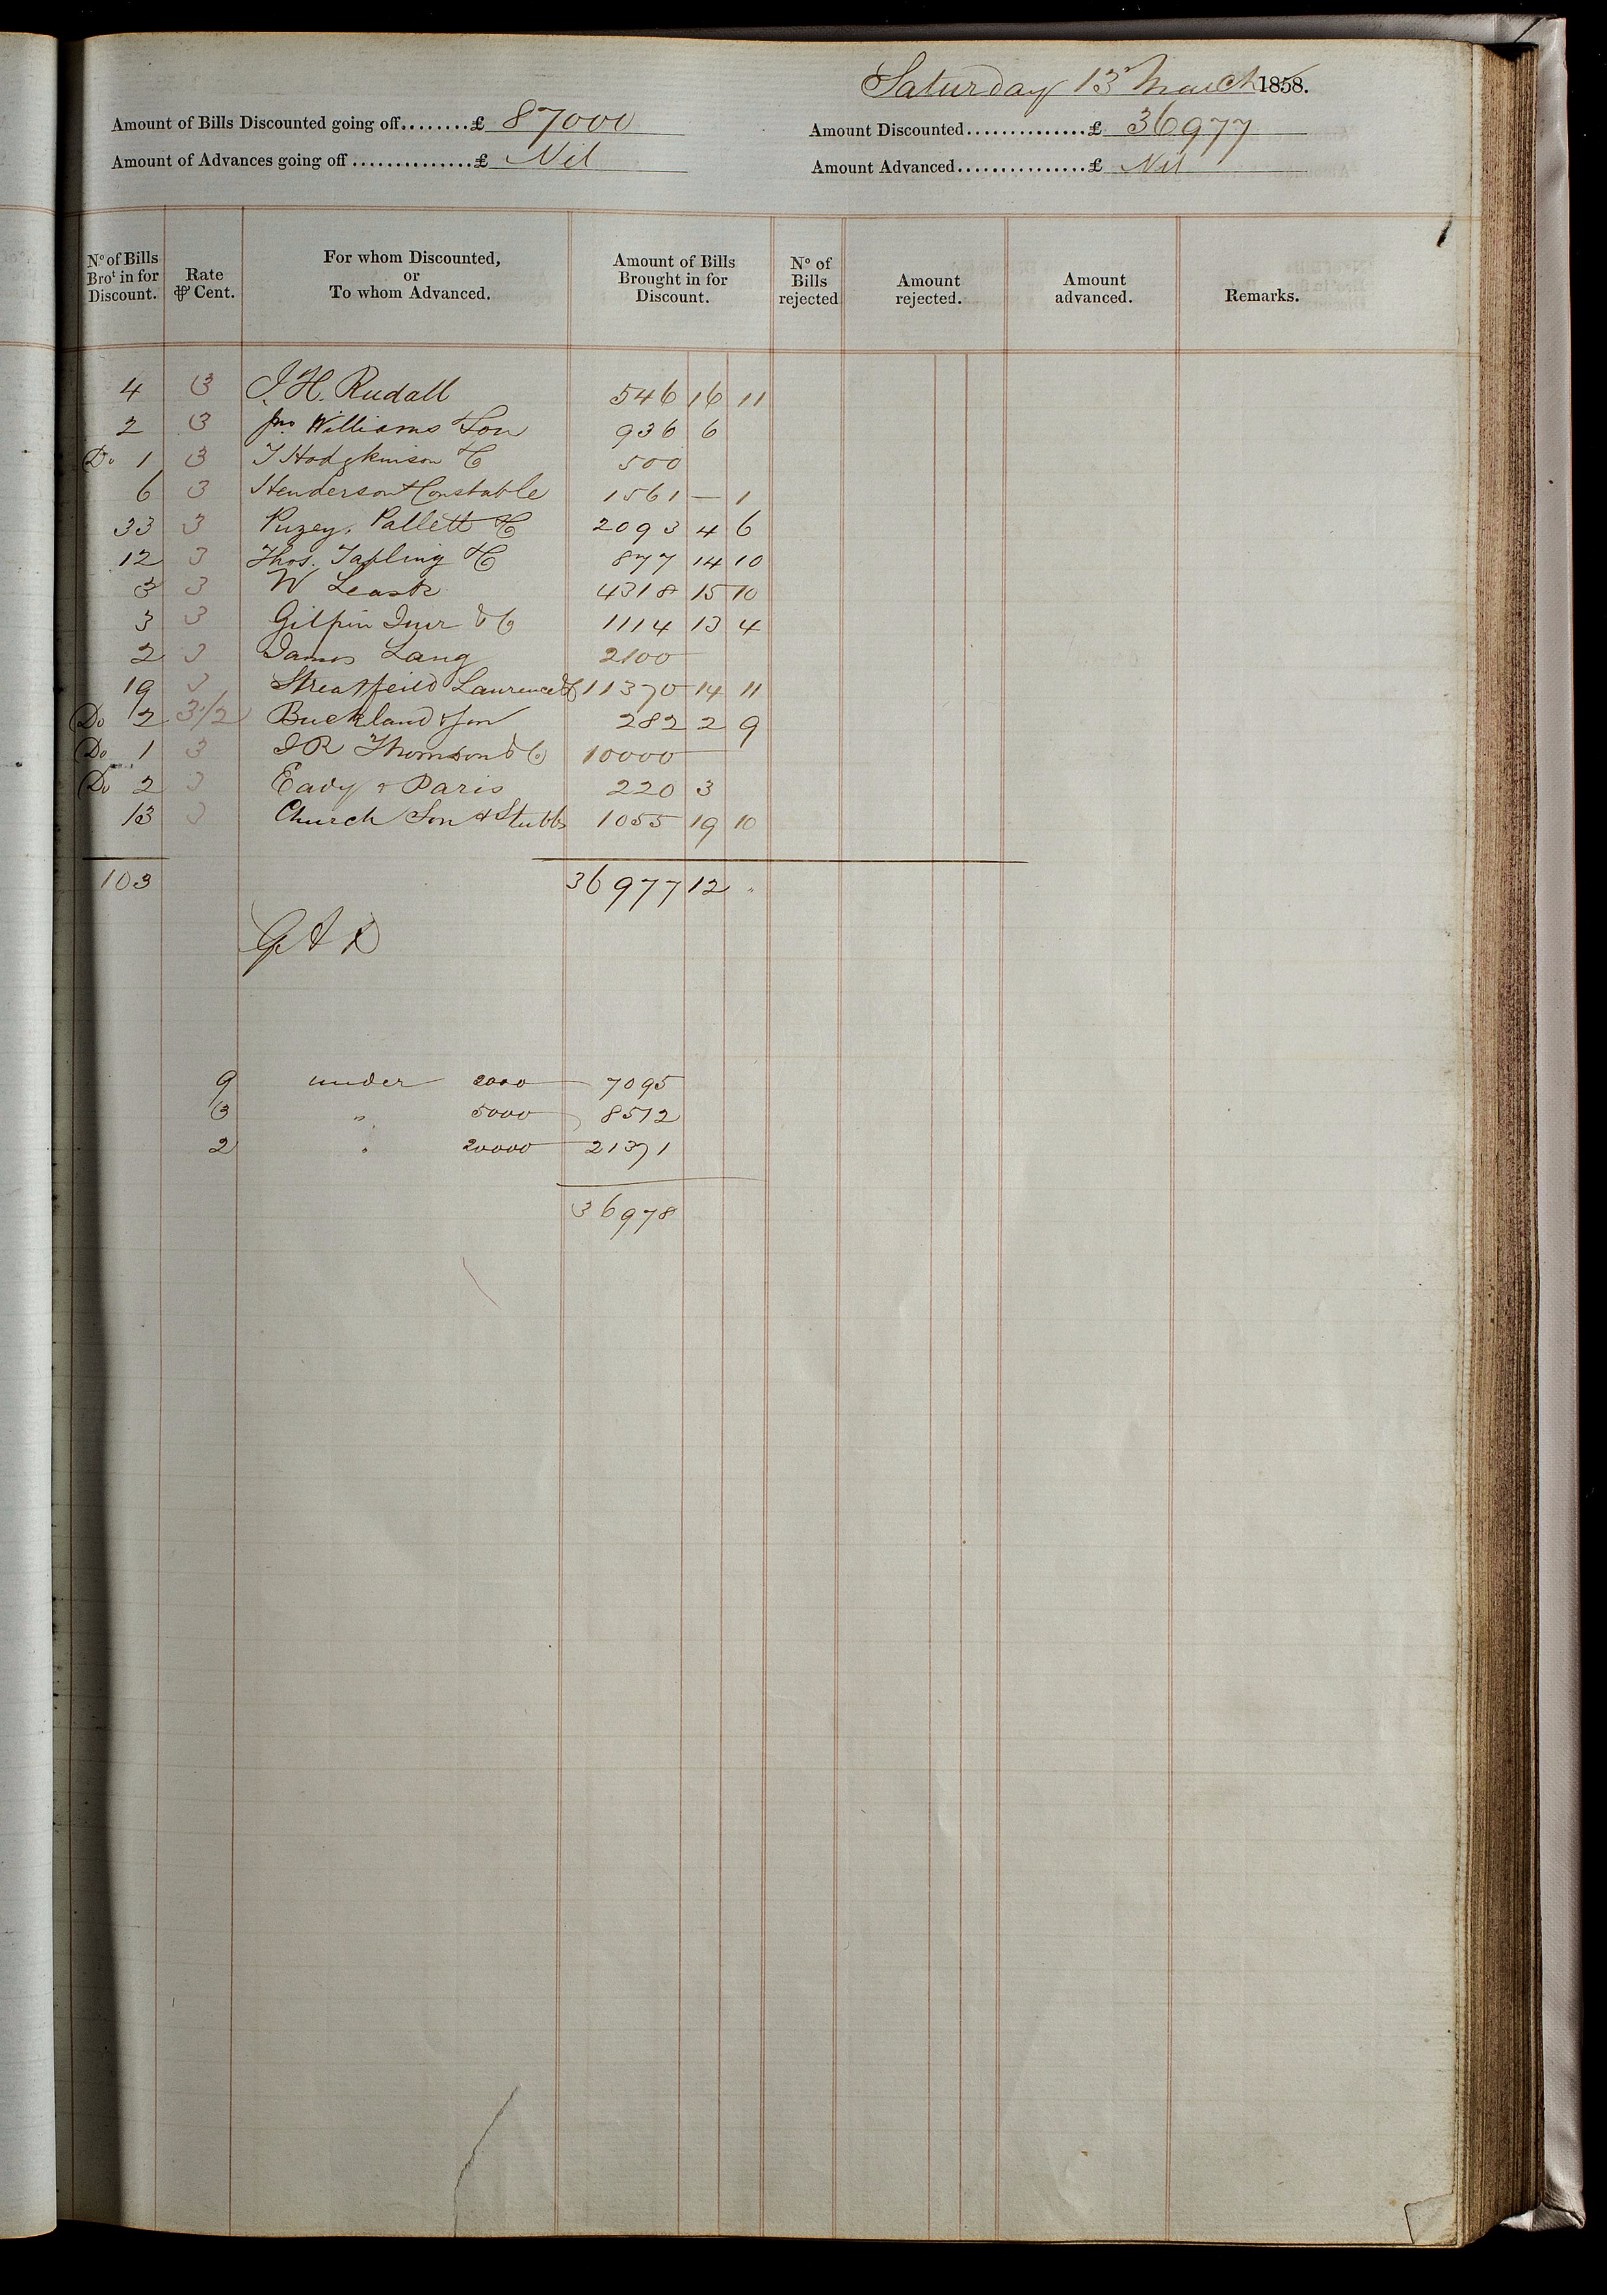 Saturday 13th March 1858.
Amount of Bills Discounted going off........£ 87000
Amount Discounted..............£ 36977
Amount of Advances going off..............£ Nil
Amount Advanced...............£ Nil
1
No of Bills Brot in for Discount. Rate ⅌ Cent. For whom Discounted, or To whom Advanced. Amount of Bills Brought in for Discount. No of Bills rejected Amount rejected. Amount advanced. Remarks.
4 3 J. H. Rudall 546 16 11
2 3 Jno Williams & Son 936 6
Do 1 3 T Hodgkinson & Co 500
6 3 Henderson & Constable 1561 — 1
33 3 Puzey, Pallett & Co 2093 4 6
12 3 Thos. Tapling & Co 877 14 10
3 3 W Leask 4318 15 10
3 3 Gilpin Junr & Co 1114 13 4
2 3 James Lang 2100
19 3 Streatfeild Laurence & Co 11370 14 11
Do 2 3 1/2 Buckland & Son 282 2 9
Do 1 3 J R Thomson & Co 10000
Do 2 3 Eady & Paris 220 3
13 3 Church Son & Stubbs 1055 19 10
103 36977 12 "
9 under 2000 7095
3 " 5000 8512
2 " 20000 21371
36978